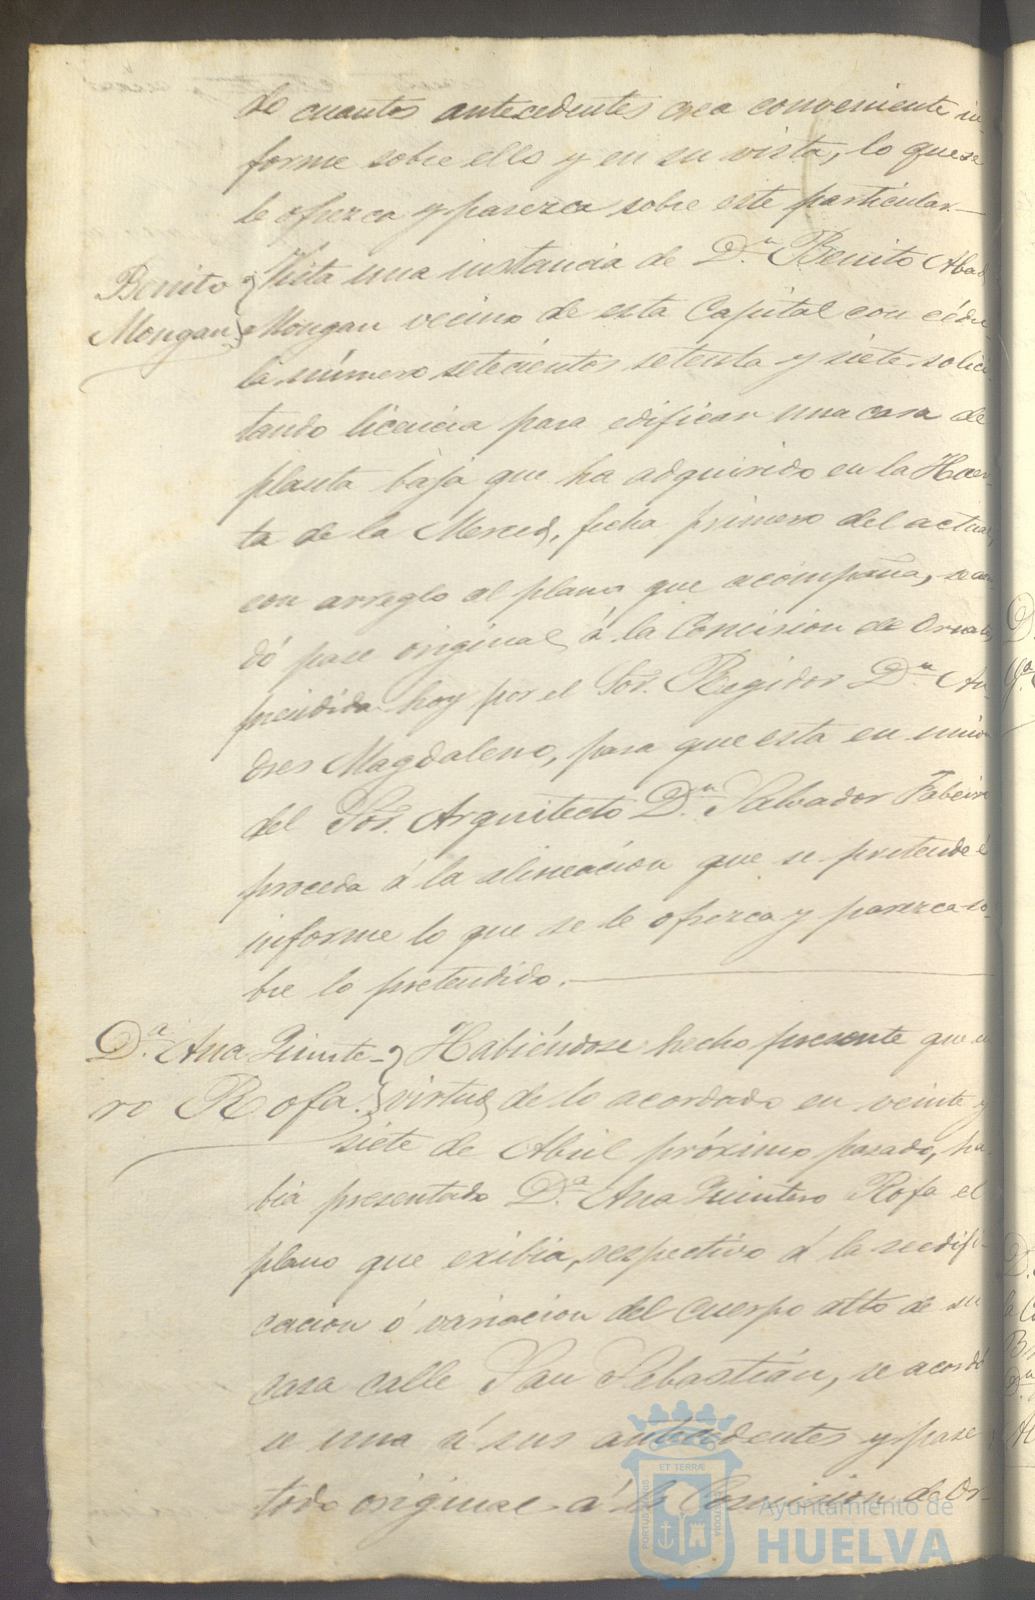 de cuantos antecedentes crea conveniente in-
forme sobre ello y en su vista, lo que se
le ofrezca y parezca sobre este particular.
Benito Mongan
Vista una instancia de D.n Benito Abad
Mongan vecino de esta Capital con cédu
la número setecientos setenta y siete solici-
tando licencia para edificar una casa de
planta baja que ha adquirido en la Huer-
ta de la Merced, fecha primero del actual,
con arreglo al plano que acompaña, se acor
dó pase original á la Comision de Ornato,
presidida hoy por el Sor. Regidor D.n An
dres Magdaleno, para que esta en union
del Sor. Arquitecto D.n Salvador
proceda á la alineacion que se pretende é
informe lo que se le ofrezca y parezca so-
bre lo pretendido.
D.a Ana Quinte-
ro Rofa.
Habiéndose hecho presente que en
virtud de lo acordado en veinte y
siete de Abril próximo pasado, ha
bia presentado D.a Ana Quintero Rofa el
plano que exibia, respectivo á la reedifi-
cacion ó variacion del cuerpo alto de su
casa calle San Sebastián, se acordó
se una á sus antecedentes y pase
todo original á la Comision de Or-
Ayuntamiento de
HUELVA